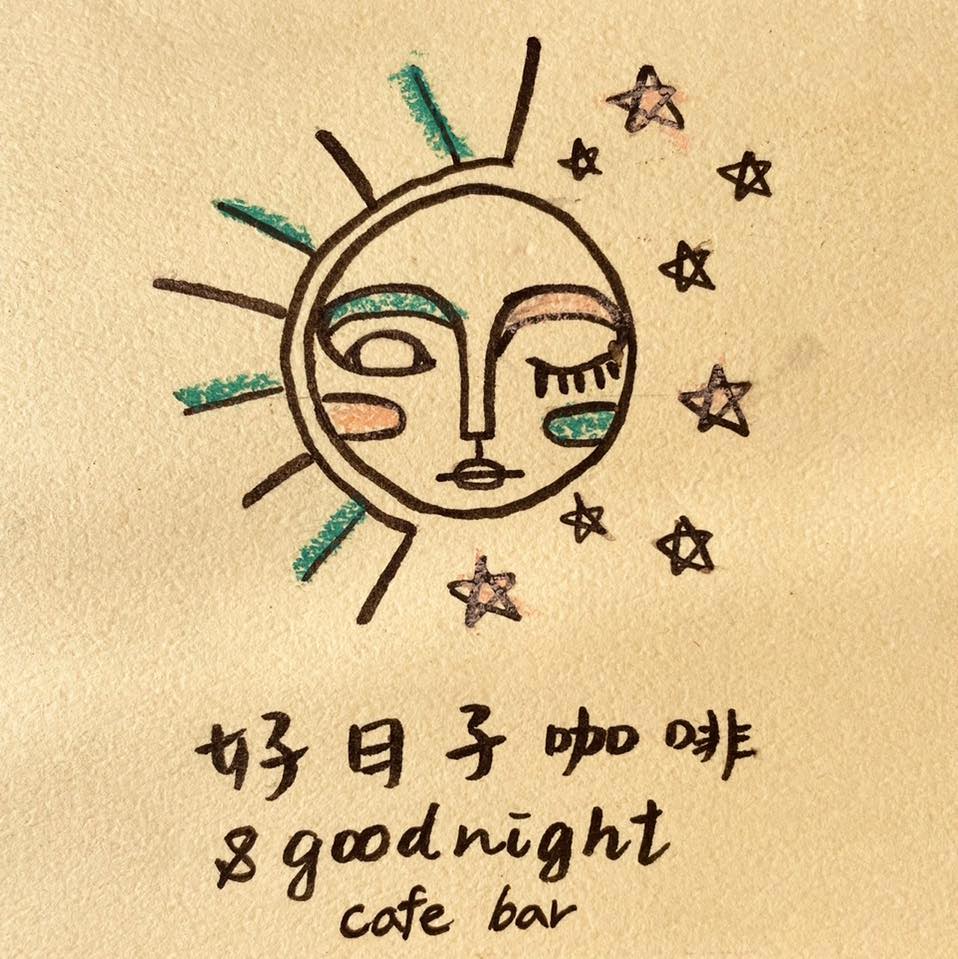 好日子咖啡
& goodnight
cafe bar